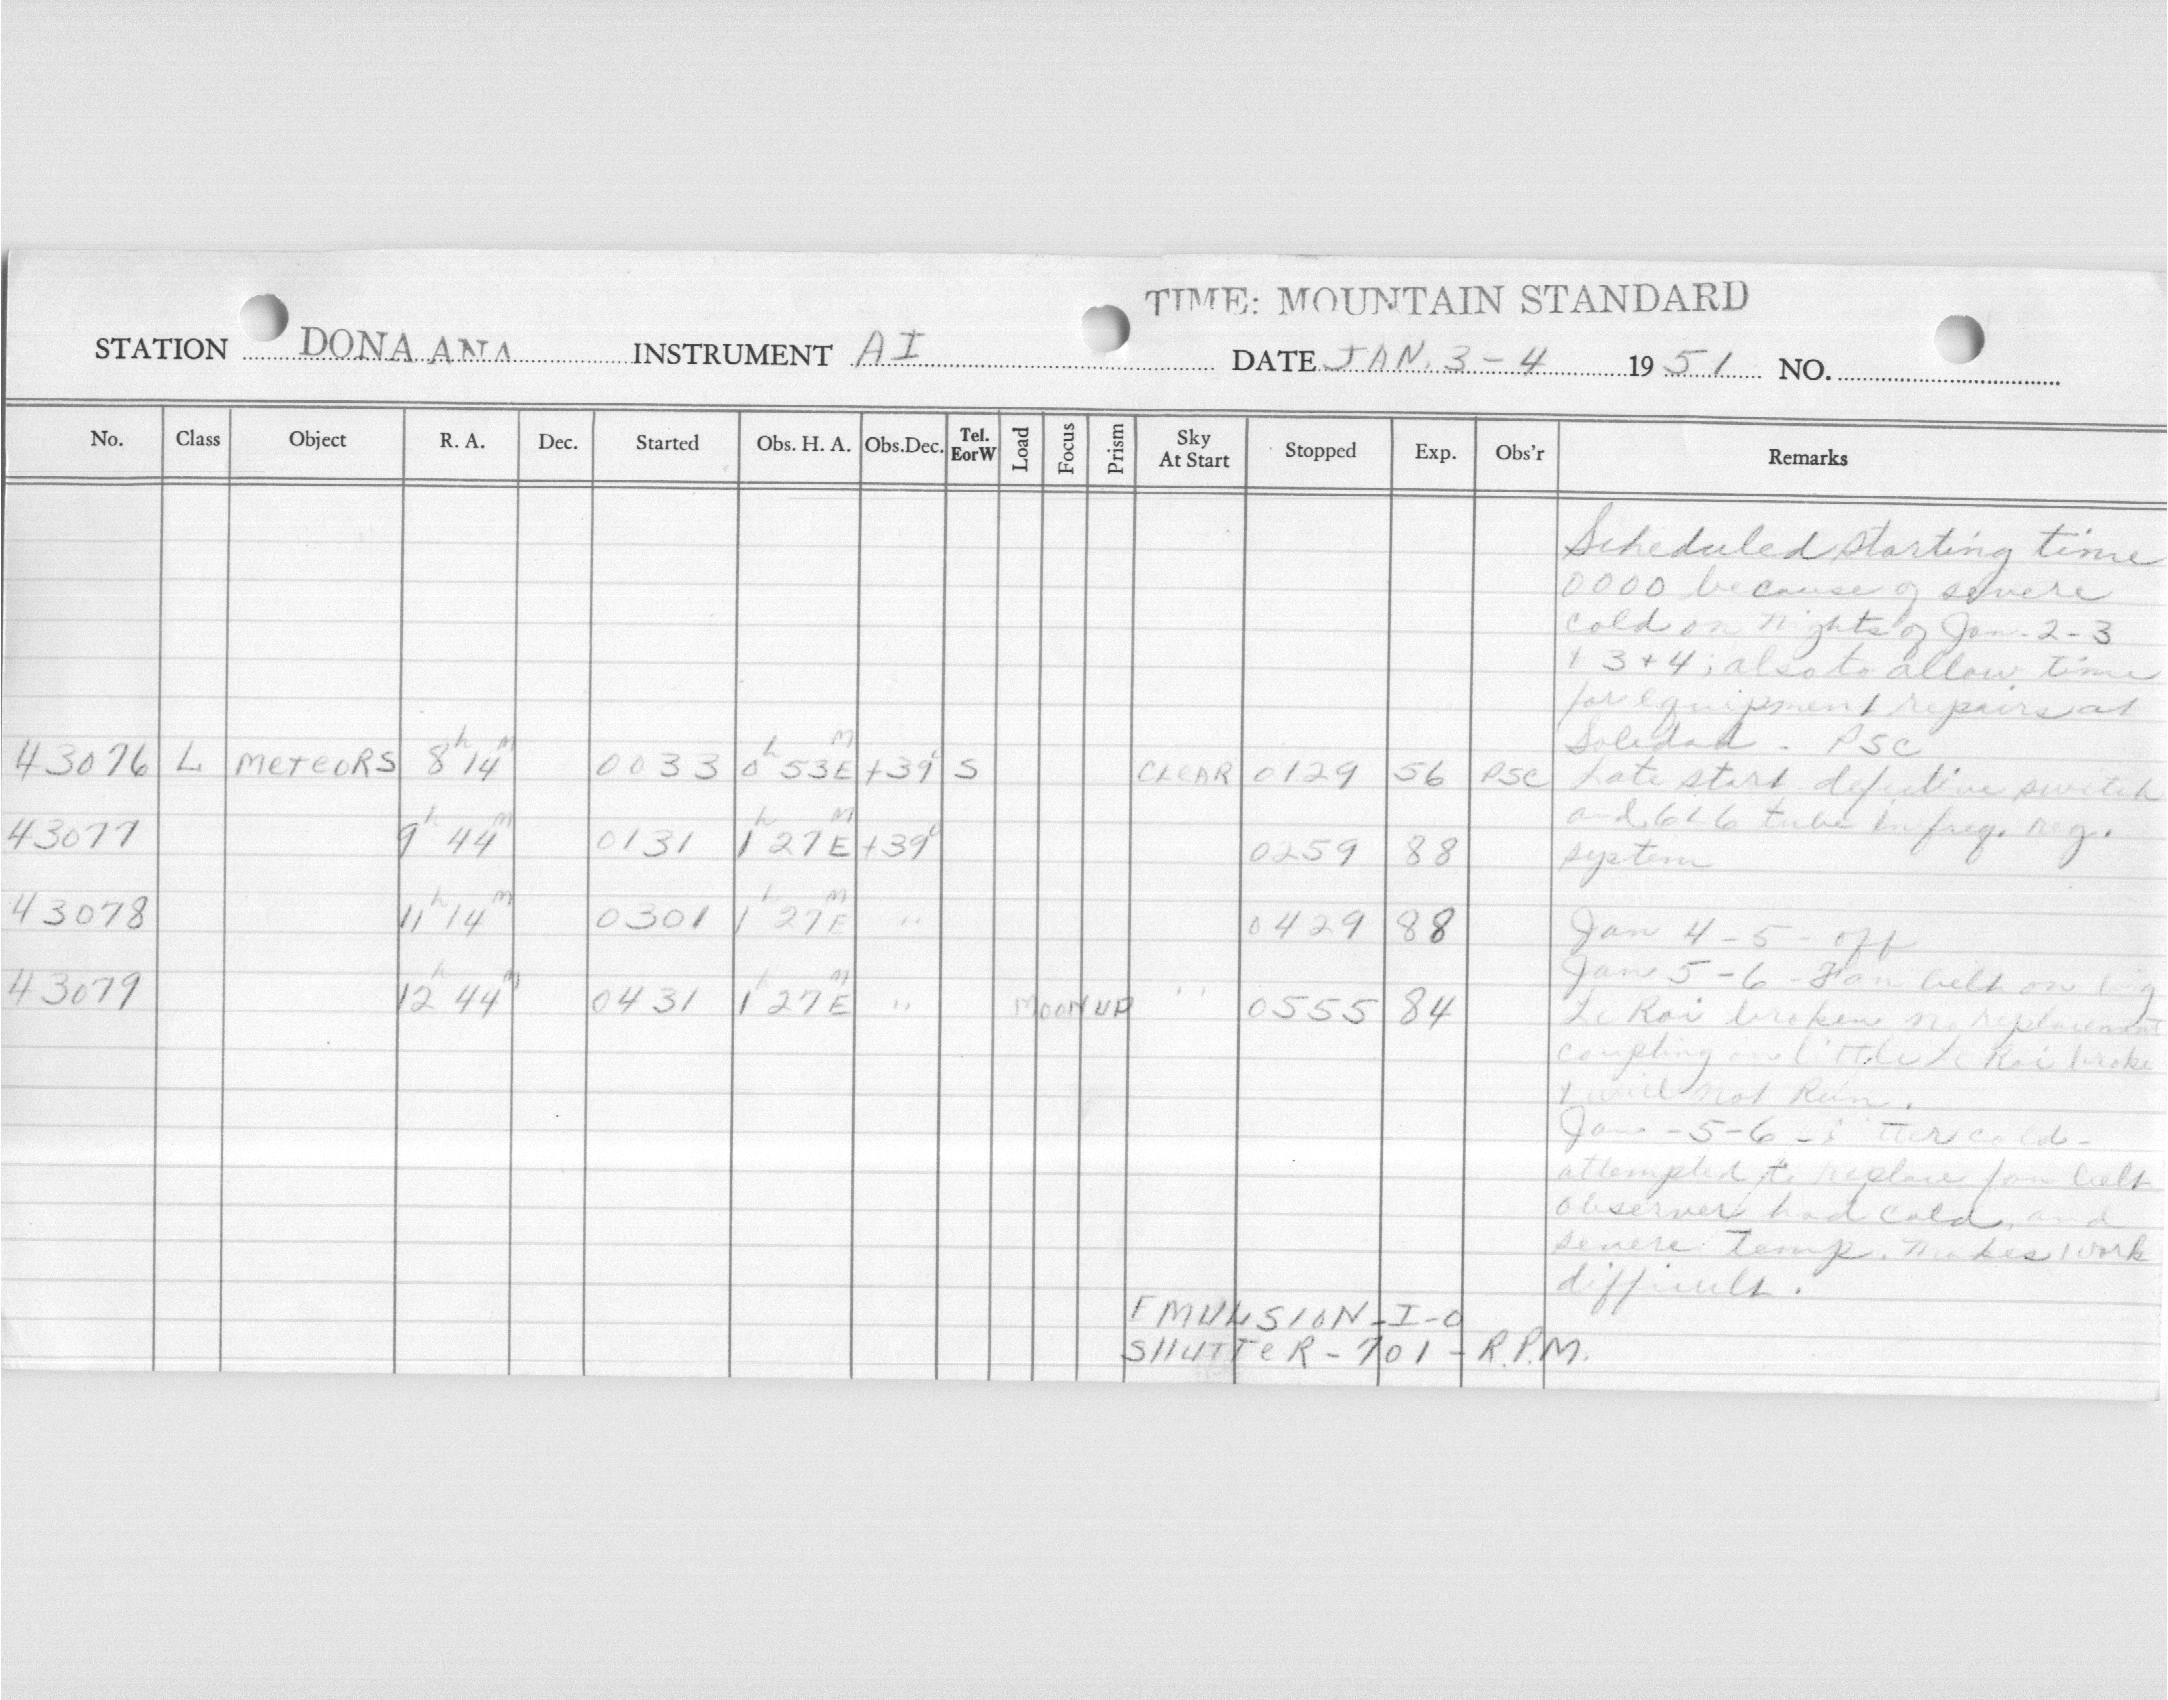 TIME: MOUNTAIN STANDARD
STATION DONA ANA INSTRUMENT AI DATE JAN. 3-4 1951 NO.
No. Class Object R. A. Dec. Started Obs. H. A. Obs.Dec. Tel. EorW Load Focus Prism Sky At Start Stopped Exp. Obs'r Remarks
Scheduled starting time
0000 because of severe
cold on nights of Jan-2-3
+ 3+4; also to allow time
for equipment repairs at
Soledad - PSC
43076 L METEORS 8h 14m 0033 0h 53mE +39° S CLEAR 0129 56 PSC Late start defective switch
and 6L6 tube in freq. reg.
43077 9h 44m 0131 1h 27mE +39° 0259 88 system
43078 11h 14m 0301 1h 27mE " 0429 88 Jan 4-5-off
Jan 5-6-Fan belt on big
43079 12h 44m 0431 1h 27mE " MOON UP " 0555 84 Le Roi broken no replacement
coupling on little Le Roi broke
+ will not Run.
Jan-5-6- cold-
attempted to replace fan belt
observer had cold, and
severe temp. makes work
difficult.
EMULSION-I-O
SHUTTER-701-R.P.M.